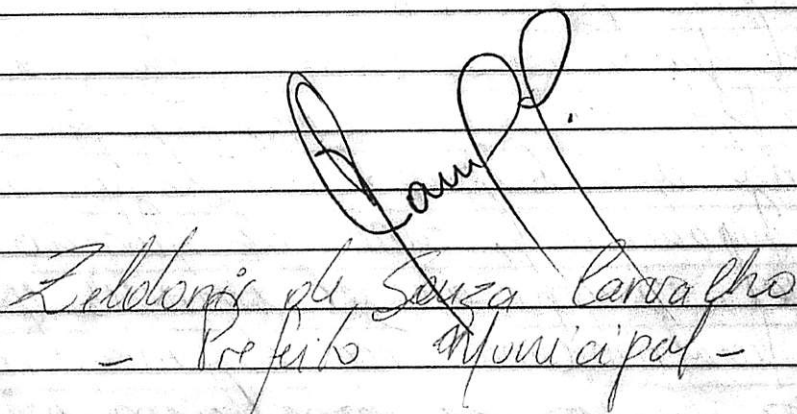 Zeldonir de Souza Carvalho
- Prefeito Municipal -